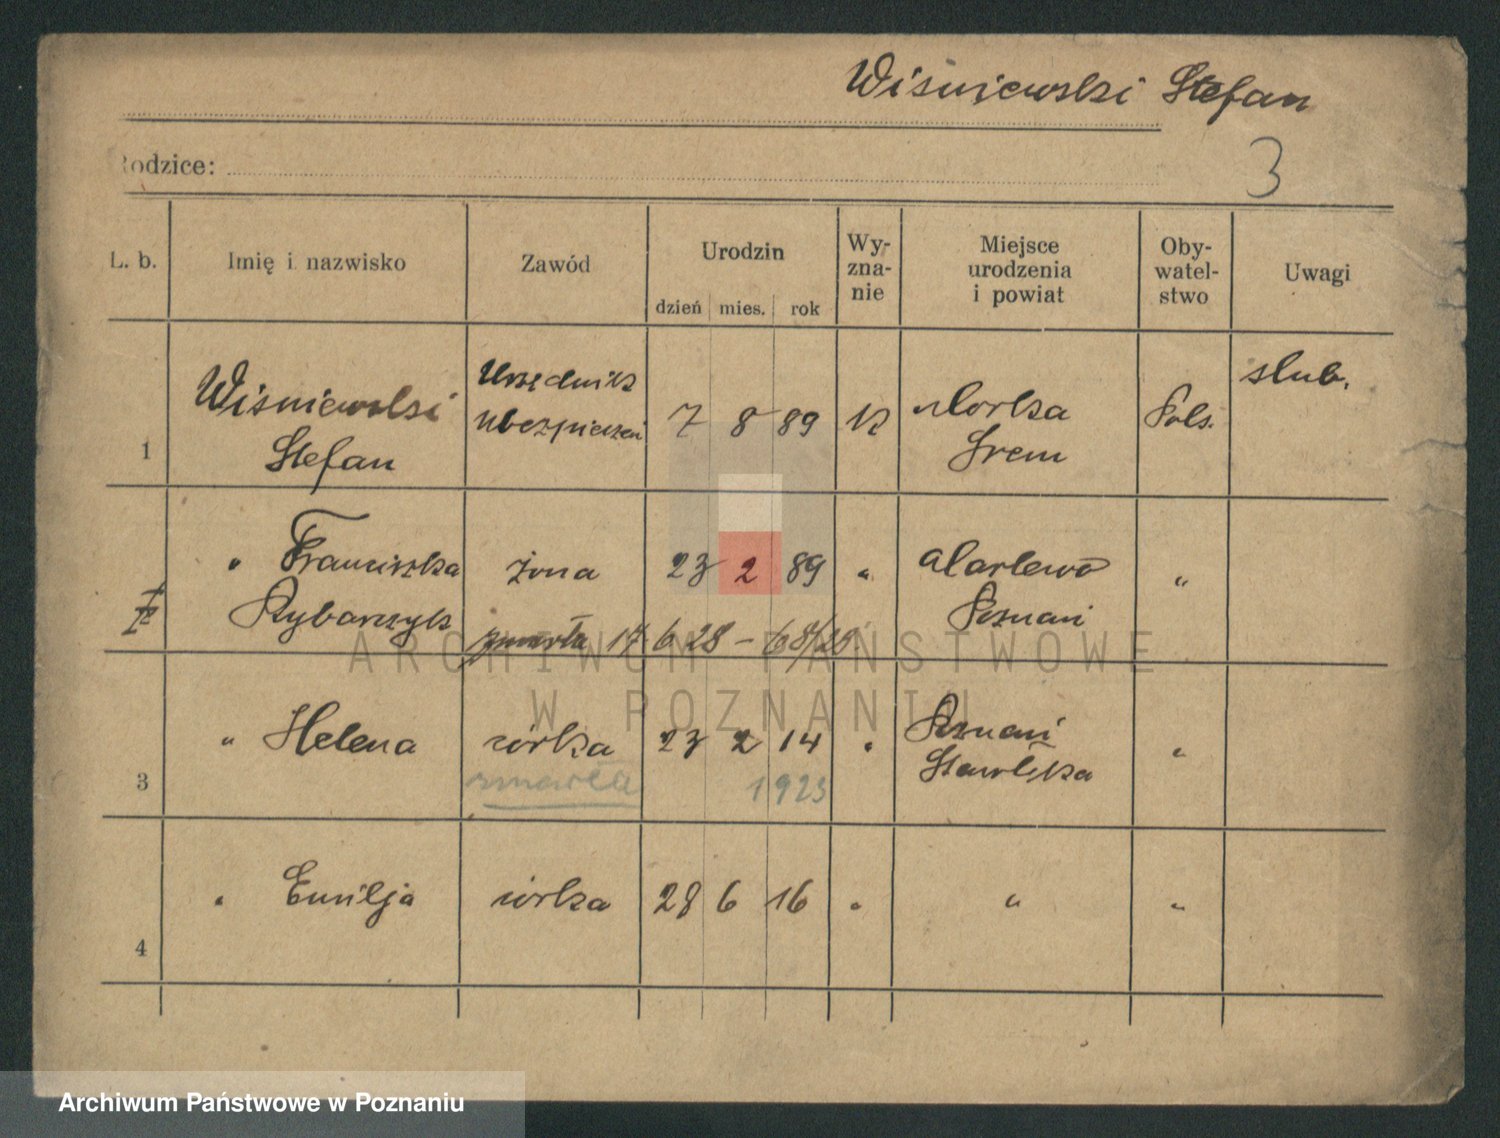 Wiśniewski Stefan
Rodzice:
3
L. b.
Imię i nazwisko
Zawód
Urodzin
dzień mies. rok
Wy-
zna-
nie
Miejsce
urodzenia
i powiat
Oby-
watel-
stwo
Uwagi
1
Wiśniewski
Stefan
Urzędnik
ubezpieczeń
7 8 89
k
Śrem
Pols.
slub.
" Franciszka
Rybarczyk
żona
23 2 89
"
Poznań
"
zmarła 17 6 28 - 68/28
3
" Helena
córka
23 2 14
"
Poznań
"
zmarła 1923
4
" Emilja
córka
28 6 16
"
"
"
ARCHIWUM PAŃSTWOWE
W POZNANIU
Archiwum Państwowe w Poznaniu